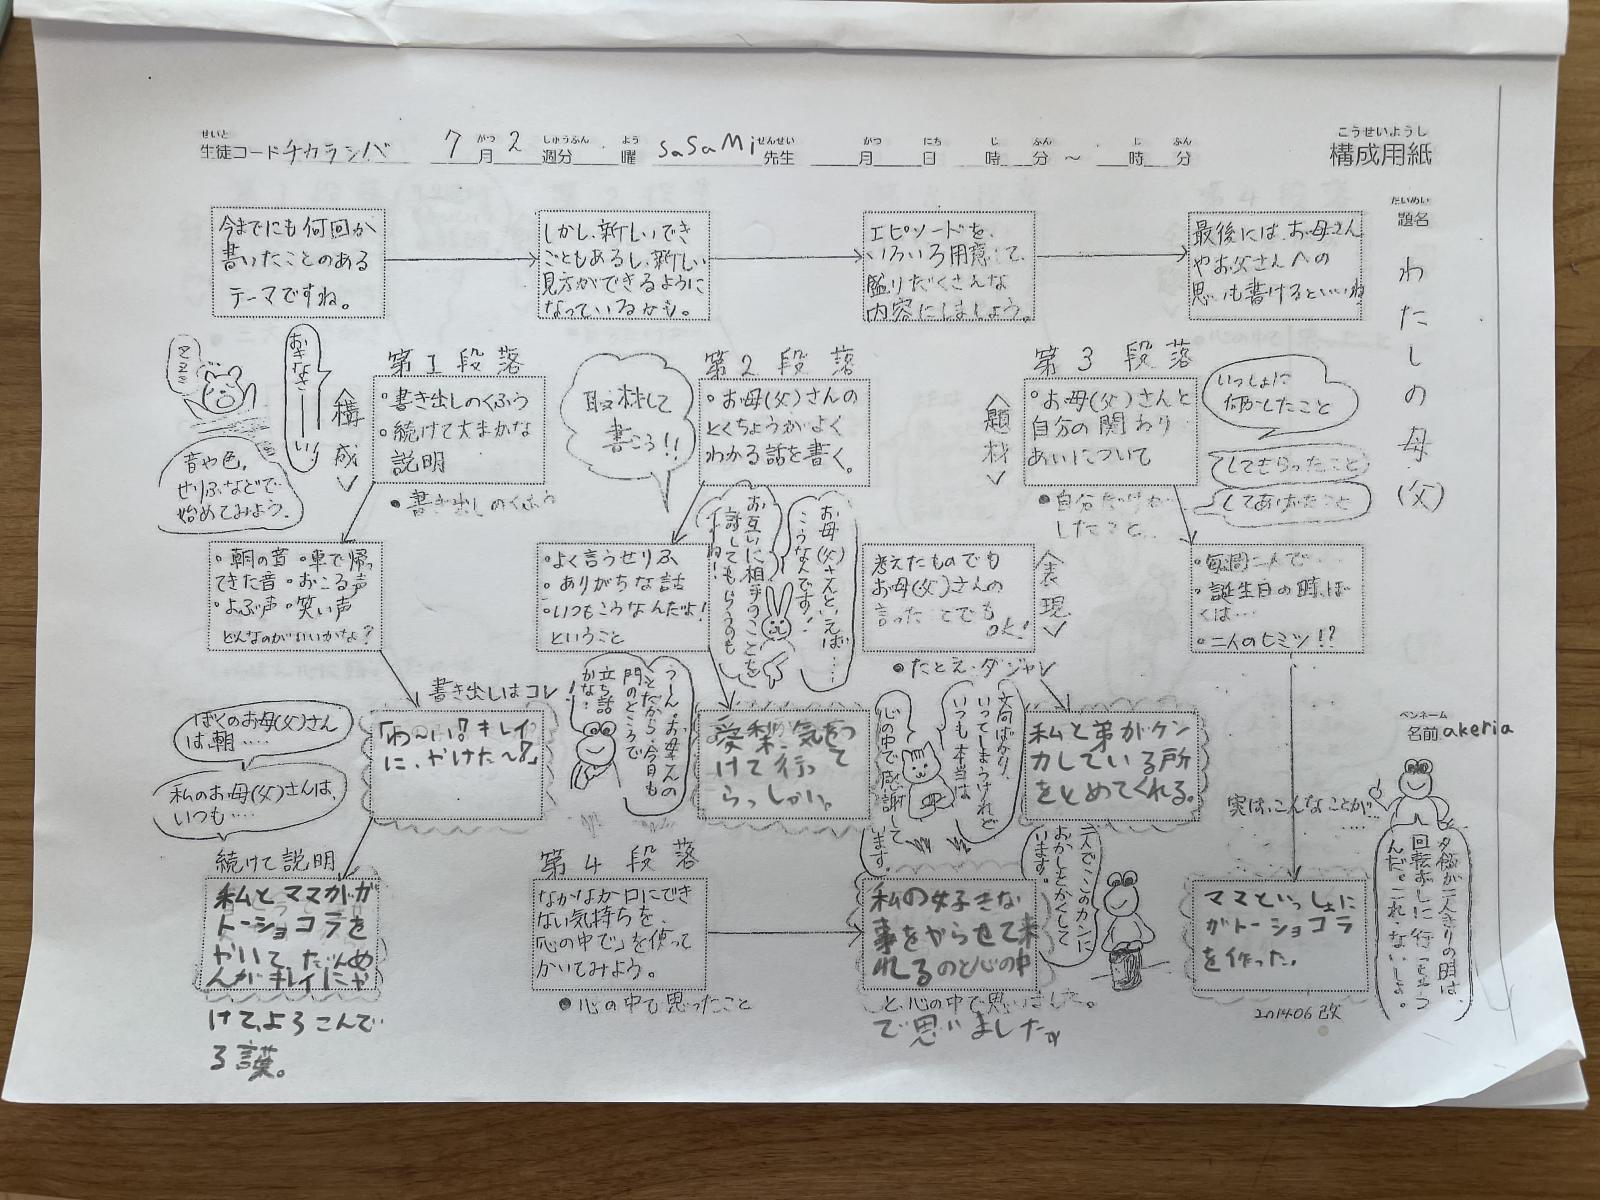 こうせいようし
構成用紙
せいと がつ しゅうぶん よう せんせい がつ にち じ ふん じ ふん
生徒コード チカラシバ 7月2週分 曜 SaSaMi先生 月 日 時 分〜 時 分
だいめい
題名
わたしの母(父)
ペンネーム
名前 akeria
今までにも何回か
書いたことのある
テーマですね。
しかし、新しいでき
ごともあるし、新しい
見方ができるように
なっているかも。
エピソードを、
いろいろ用意して、
盛りだくさんな
内容にしましょう。
最後には、お母さん
やお父さんへの
思いも書けるといいね
<構成>
おきなさーーい!
音や色、
せりふなどで、
始めてみよう。
第1段落
・書き出しのくふう
・続けて大まかな
説明
・書き出しのくふう
・朝の音・車で帰っ
てきた音・おこる声
・よぶ声・笑い声
どんなのがいいかな?
書き出しはコレ!
「わ〜い!?キレイ
に、やけた〜!?」
ぼくのお母(父)さん
は、朝‥‥
私のお母(父)さんは、
いつも‥‥
続けて説明
私とママがガ
トーショコラを
やいて
んがキレイにや
けて、よろこんで
る
第2段落
取材して
書こう!!
・お母(父)さんの
とくちょうがよく
わかる話を書く。
・よく言うせりふ
・ありがちな話
・いつもこうなんだよ!
ということ
お母(父)さんといえば‥‥
こうなんです!
お互いに相手のことを
話してもらうのも
いいね!
うーん。お母さんの
ことだから、今日も
門のところで
立ち話
かな!
愛梨、気をつ
けて行って
らっしゃい。
<題材>
第3段落
・お母(父)さんと
自分の関わり
あいについて
いっしょに
何かしたこと
してもらったこと
してあげたこと
・自分だけが
したこと
・毎週二人で‥‥
・誕生日の時、ぼ
くは‥‥
・二人のヒミツ!?
<表現>
考えたものでも
お母(父)さんの
言ったことでも
OK!
・たとえ・ダジャレ
私と弟がケン
カしている所
をとめてくれる。
実は、こんなことが‥‥
ママといっしょに
ガトーショコラ
を作った。
夕飯が二人きりの時は、
回転ずしに行っちゃう
んだ。これ、ないしょ。
二人でここのカンに
おかしとかくして
います。
文句ばかり、
いってしまうけれど
いつも本当は
心の中で感謝して
います。
第4段落
なかなか口にでき
ない気持ちを、
「心の中で」を使って
かいてみよう。
・心の中で思ったこと
私の好きな
事をやらせて来
れるのと心の中
と、心の中で思いました。
で思いました
201406改